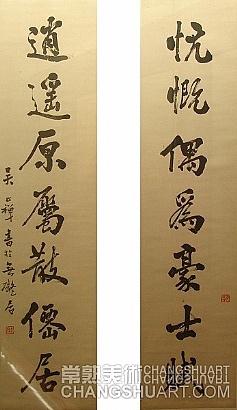 忼慨偶爲豪士賦
逍遥原屬散僊居
禪書於無居
常熟美術CHANGSHUART
CHANGSHUART.COM